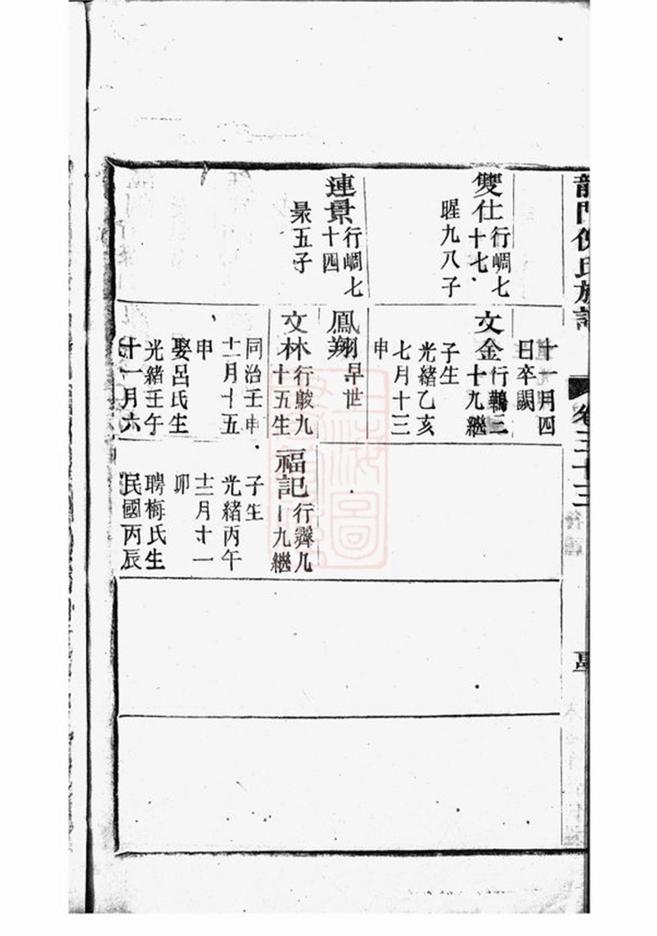 龍門倪氏族譜
卷二十三
雙仕行峒七
十七
暒九八子
連景行峒七
十四
景五子
十一月四
日卒闕
文金行鵜三
十九繼
子生
光緒乙亥
七月十三
申
鳳翔早世
文林行鮁九
十五生
同治壬申
十一月十五
申
娶呂氏生
光緒壬午
十一月六
福記行霽几
十九繼
子生
光緒丙午
十二月十一
卯
聘梅氏生
民國丙辰